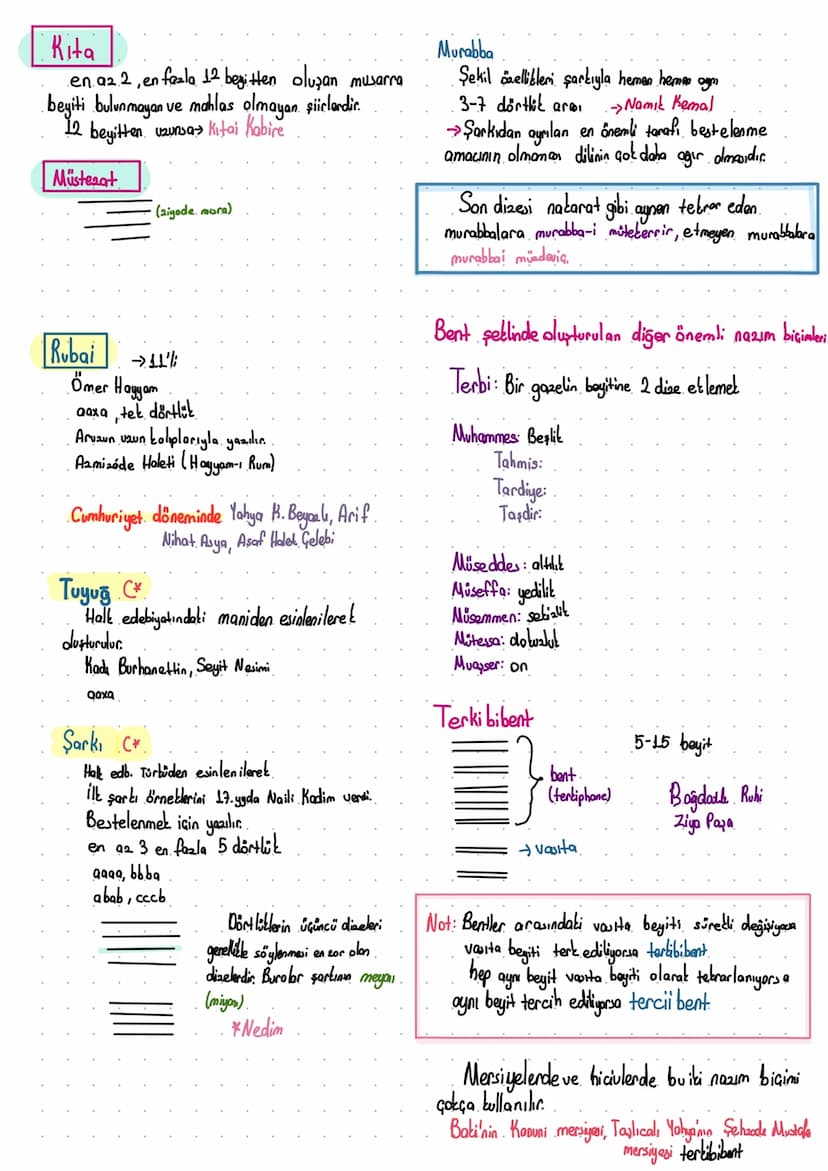 Kıta
en az 2, en fazla 12 beyitten oluşan musarra
beyiti bulunmayan ve mahlas olmayan şiirlerdir.
12 beyitten uzunsa → Kıtai Kabire
Müstezat
(ziyade mısra)
Rubai → 11'li
Ömer Hayyam
aaxa, tek dörtlük
Aruzun uzun kalıplarıyla yazılır.
Azmizâde Haleti (Hayyam-ı Rum)
Cumhuriyet döneminde Yahya K. Beyatlı, Arif
Nihat Asya, Asaf Halet Çelebi
Tuyuğ C*
Halk edebiyatındaki maniden esinlenilerek
oluşturulur.
Kadı Burhanettin, Seyit Nesimi
aaxa
Şarkı C*
Halk edb. Türküden esinlenilerek
İlk şarkı örneklerini 17.yyda Naili Kadim verdi.
Bestelenmek için yazılır.
en az 3 en fazla 5 dörtlük
aaaa, bbba
abab, cccb
Dörtlüklerin üçüncü dizeleri
genellikle söylenmesi en zor olan
dizelerdir. Buralar şarkının meyanı
(miyan)
*Nedim
Murabba
Şekil özellikleri şarkıyla hemen hemen aynı
3-7 dörtlük arası → Namık Kemal
→ Şarkıdan ayrılan en önemli tarafı bestelenme
amacının olmaması dilinin çok daha ağır olmasıdır.
Son dizesi nakarat gibi aynen tekrar eden
murabbalara murabba-i mütekerrir, etmeyen murabbalara
murabbai müzdeviç.
Bent şeklinde oluşturulan diğer önemli nazım biçimleri
Terbi: Bir gazelin beyitine 2 dize eklemek
Muhammes: Beşlik
Tahmis:
Tardiye:
Taşdir:
Müseddes: altılık
Müseffa: yedilik
Müsemmen: sekizlik
Mütessa: dokuzluk
Muaşşer: on
Terkibibent
5-15 beyit
bent
(terkiphane)
Bağdatlı Ruhi
Ziya Paşa
→ vasıta
Not: Bentler arasındaki vasıta beyiti sürekli değişiyorsa
vasıta beyiti terk ediliyorsa terkibibent
hep aynı beyit vasıta beyiti olarak tekrarlanıyorsa
aynı beyit tercih ediliyorsa terciibent
Mersiyelerde ve hicivlerde bu iki nazım biçimi
çokça kullanılır.
Baki'nin Kanuni mersiyesi, Taşlıcalı Yahya'nın Şehzade Mustafa
mersiyesi terkibibent